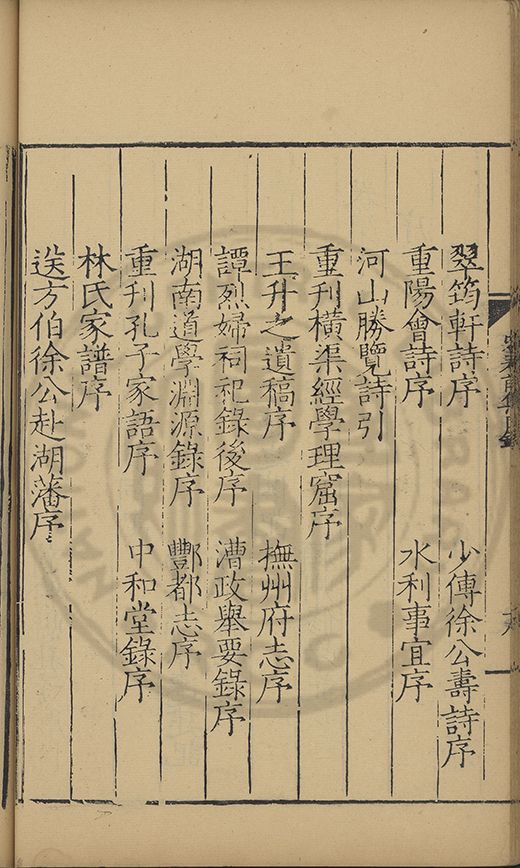 翠筠軒詩序　少傅徐公壽詩序
重陽會詩序　水利事宜序
河山勝覽詩引
重刊橫渠經學理窟序
王升之遺稿序　撫州府志序
譚烈婦祠祀錄後序　漕政舉要錄序
湖南道學淵源錄序　酆都志序
重刊孔子家語序　中和堂錄序
林氏家譜序
送方伯徐公赴湖藩序